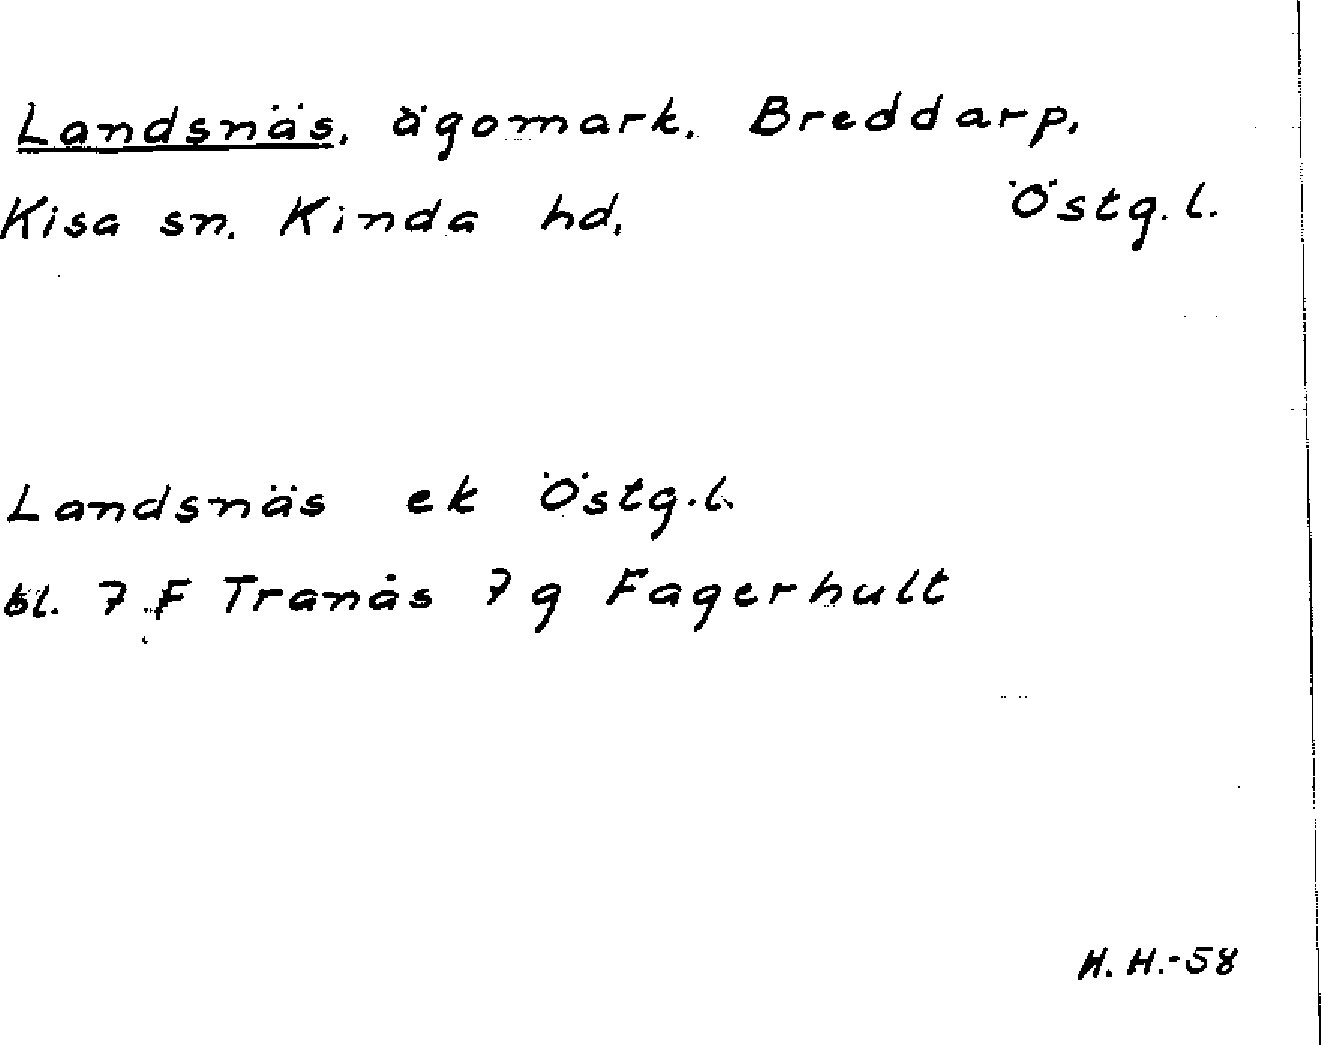 Landsnäs, ägomark. Breddarp,
Kisa sn. Kinda hd. Östg. l.
Landsnäs ek Östg. l.
bl. 7 F Tranås 7 g Fagerhult
H. H.-58